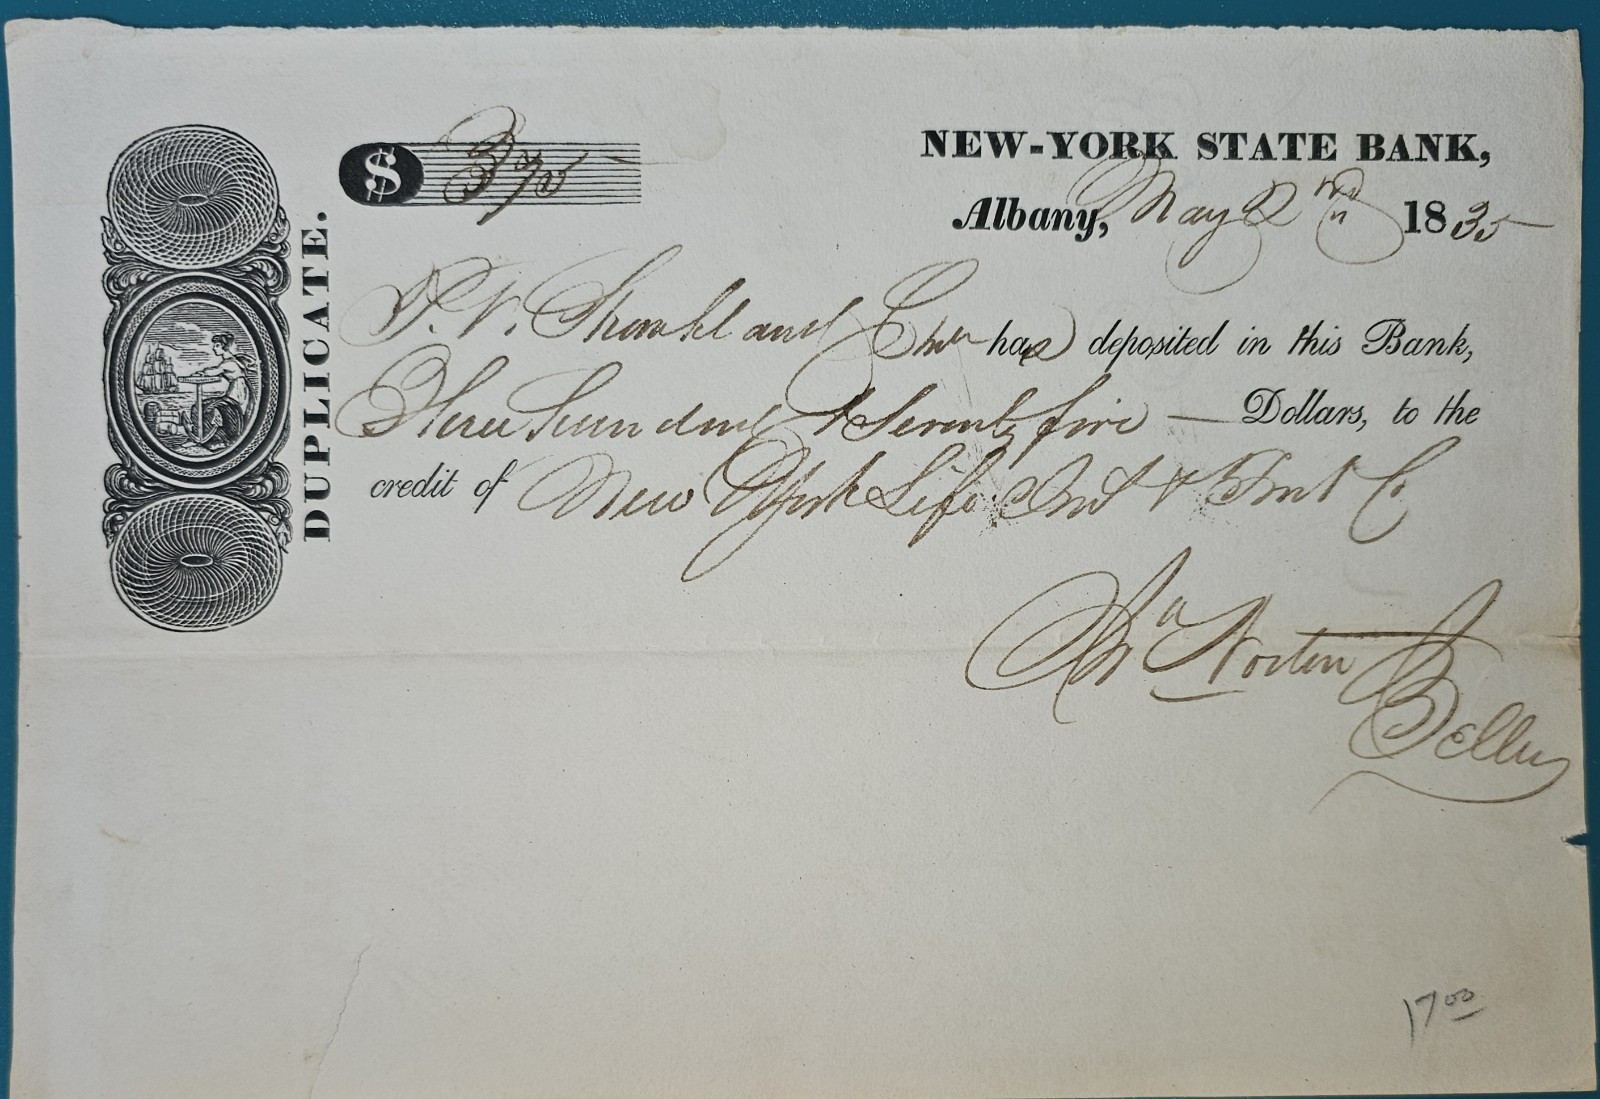 DUPLICATE.
$ 375
NEW-YORK STATE BANK,
Albany, May 2nd 1835
has deposited in this Bank,
Three hundred & Seventy five — Dollars, to the
credit of New York Life Inst & Trust Co
Norton
1700